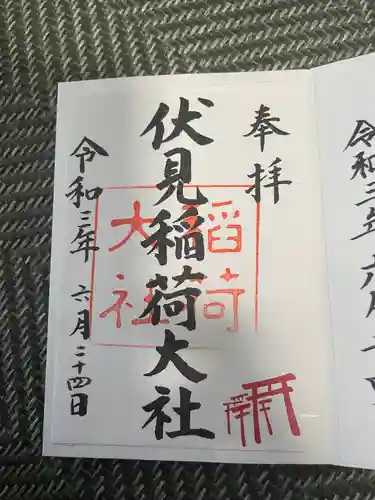 奉拝
伏見稲荷大社
稲荷
大社
令和三年 六月二十四日
令和二年 六月